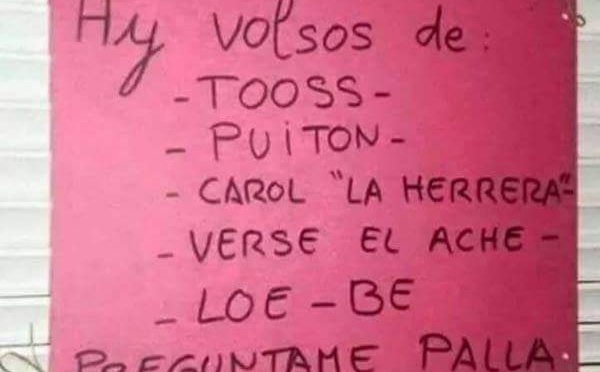 Hy volsos de:
-TOOSS-
- PUiTON-
- CAROL "LA HERRERA"-
-VERSE EL ACHE-
- LOE-BE
PREGUNTAME PALLA